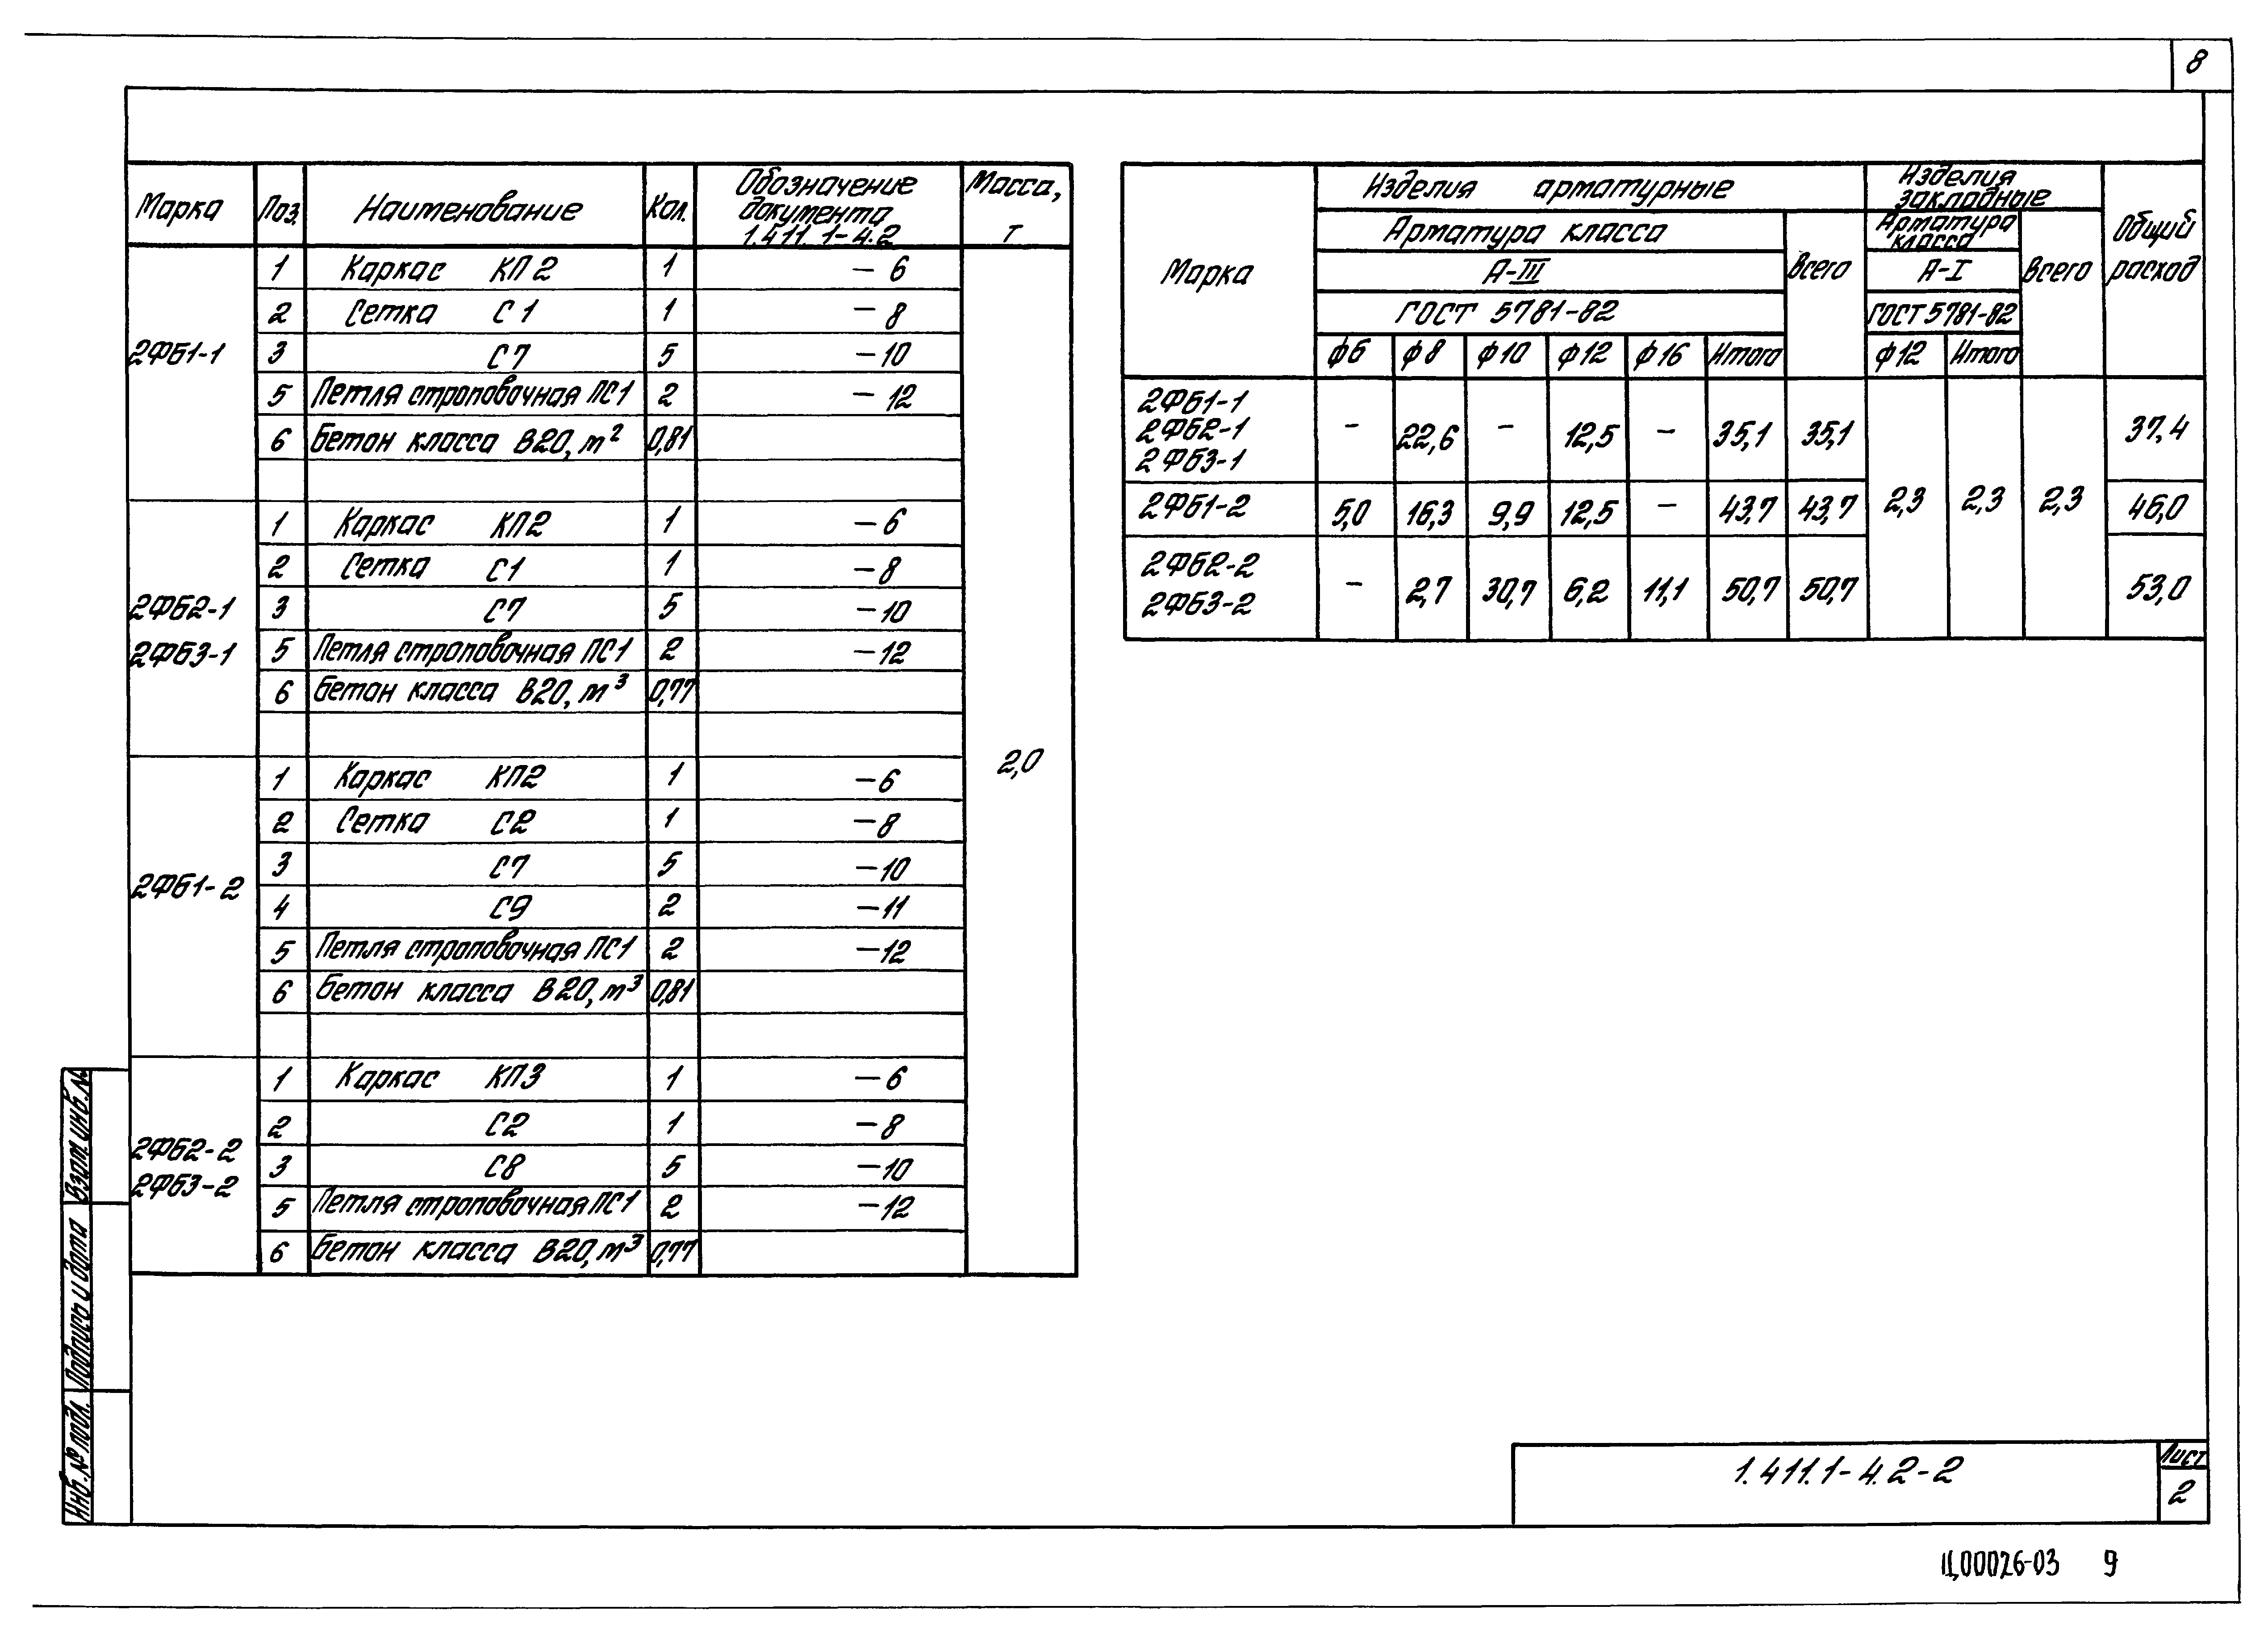 8
Марка Поз. Наименование Кол. Обозначение документа 1.411.1-4.2 Масса, т
2ФБ1-1
1 Каркас КП2 1 -6
2 Сетка С1 1 -8
3 С7 5 -10
5 Петля строповочная ПС1 2 -12
6 Бетон класса В20, м² 0,81
2ФБ2-1
2ФБ3-1
1 Каркас КП2 1 -6
2 Сетка С1 1 -8
3 С7 5 -10
5 Петля строповочная ПС1 2 -12
6 Бетон класса В20, м³ 0,77
2,0
2ФБ1-2
1 Каркас КП2 1 -6
2 Сетка С2 1 -8
3 С7 5 -10
4 С9 2 -11
5 Петля строповочная ПС1 2 -12
6 Бетон класса В20, м³ 0,81
2ФБ2-2
2ФБ3-2
1 Каркас КП3 1 -6
2 С2 1 -8
3 С8 5 -10
5 Петля строповочная ПС1 2 -12
6 Бетон класса В20, м³ 0,77
Марка Изделия арматурные Изделия закладные Общий расход
Арматура класса Всего Арматура класса Всего
А-III А-I
ГОСТ 5781-82 ГОСТ 5781-82
ф6 ф8 ф10 ф12 ф16 Итого ф12 Итого
2ФБ1-1
2ФБ2-1
2ФБ3-1
- 22,6 - 12,5 - 35,1 35,1 37,4
2ФБ1-2 5,0 16,3 9,9 12,5 - 43,7 43,7 2,3 2,3 2,3 46,0
2ФБ2-2
2ФБ3-2
- 2,7 30,7 6,2 11,1 50,7 50,7 53,0
Взам. инв. №
Подпись и дата
Инв. № подл.
1.411.1-4.2-2
Лист
2
Ц00026-03 9